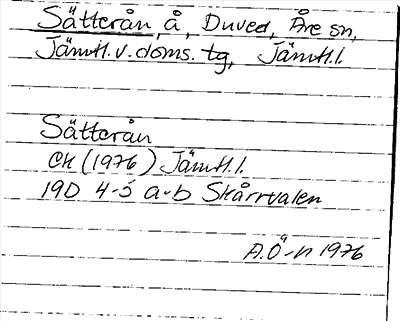 Sätterån, å, Duved, Åre sn,
Jämtl. v. doms. tg, Jämtl. l.
Sätterån
CK (1976) Jämtl. l.
19D 4-5 a-b Skårrvalen
A.Ö-n 1976